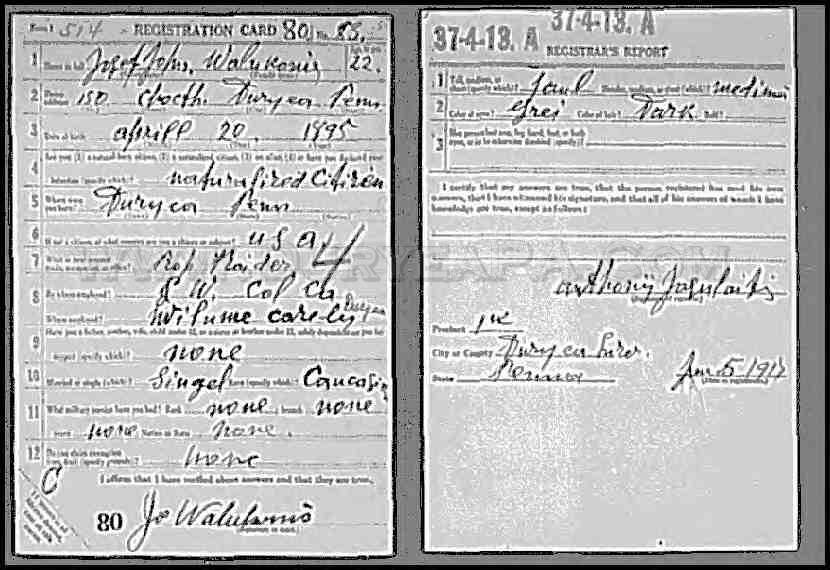 Form 1 514 REGISTRATION CARD 80 No. 83
1 Name in full Josef John. Walukonis Age, in yrs. 22.
2 Home address 150 Duryea Penn
3 Date of birth aprill 20. 1895
4 Are you (1) a natural-born citizen, (2) a naturalized citizen, (3) an alien, (4) or have you declared your
intention (specify which)? naturalized Citizen
5 Where were you born? Duryea Penn
6 If not a citizen, of what country are you a citizen or subject? U S A
7 What is your present trade, occupation, or office?
8 By whom employed?
Where employed? Duryea
9 Have you a father, mother, wife, child under 12, or a sister or brother under 12, solely dependent on you for
support (specify which)? none
10 Married or single (which)? Singel Race (specify which)? Caucasin
11 What military service have you had? Rank none branch none
years none Nation or State none.
12 Do you claim exemption from draft (specify grounds)? none
I affirm that I have verified above answers and that they are true.
80 Jo Walukonis
(Signature or mark)
37-4-13. A 37-4-13. A
REGISTRAR'S REPORT
1 Tall, medium, or short (specify which)? Taul Slender, medium, or stout (which)?
2 Color of eyes? Grei Color of hair? Dark Bald?
3 Has person lost arm, leg, hand, foot, or both eyes, or is he otherwise disabled (specify)?
I certify that my answers are true, that the person registered has read his own
answers, that I have witnessed his signature, and that all of his answers of which I have
knowledge are true, except as follows:
Anthony
Precinct 1st
City or County Duryea boro.
State Penna June 5 1917
(Date of registration)
WWW.DURYEAPA.COM